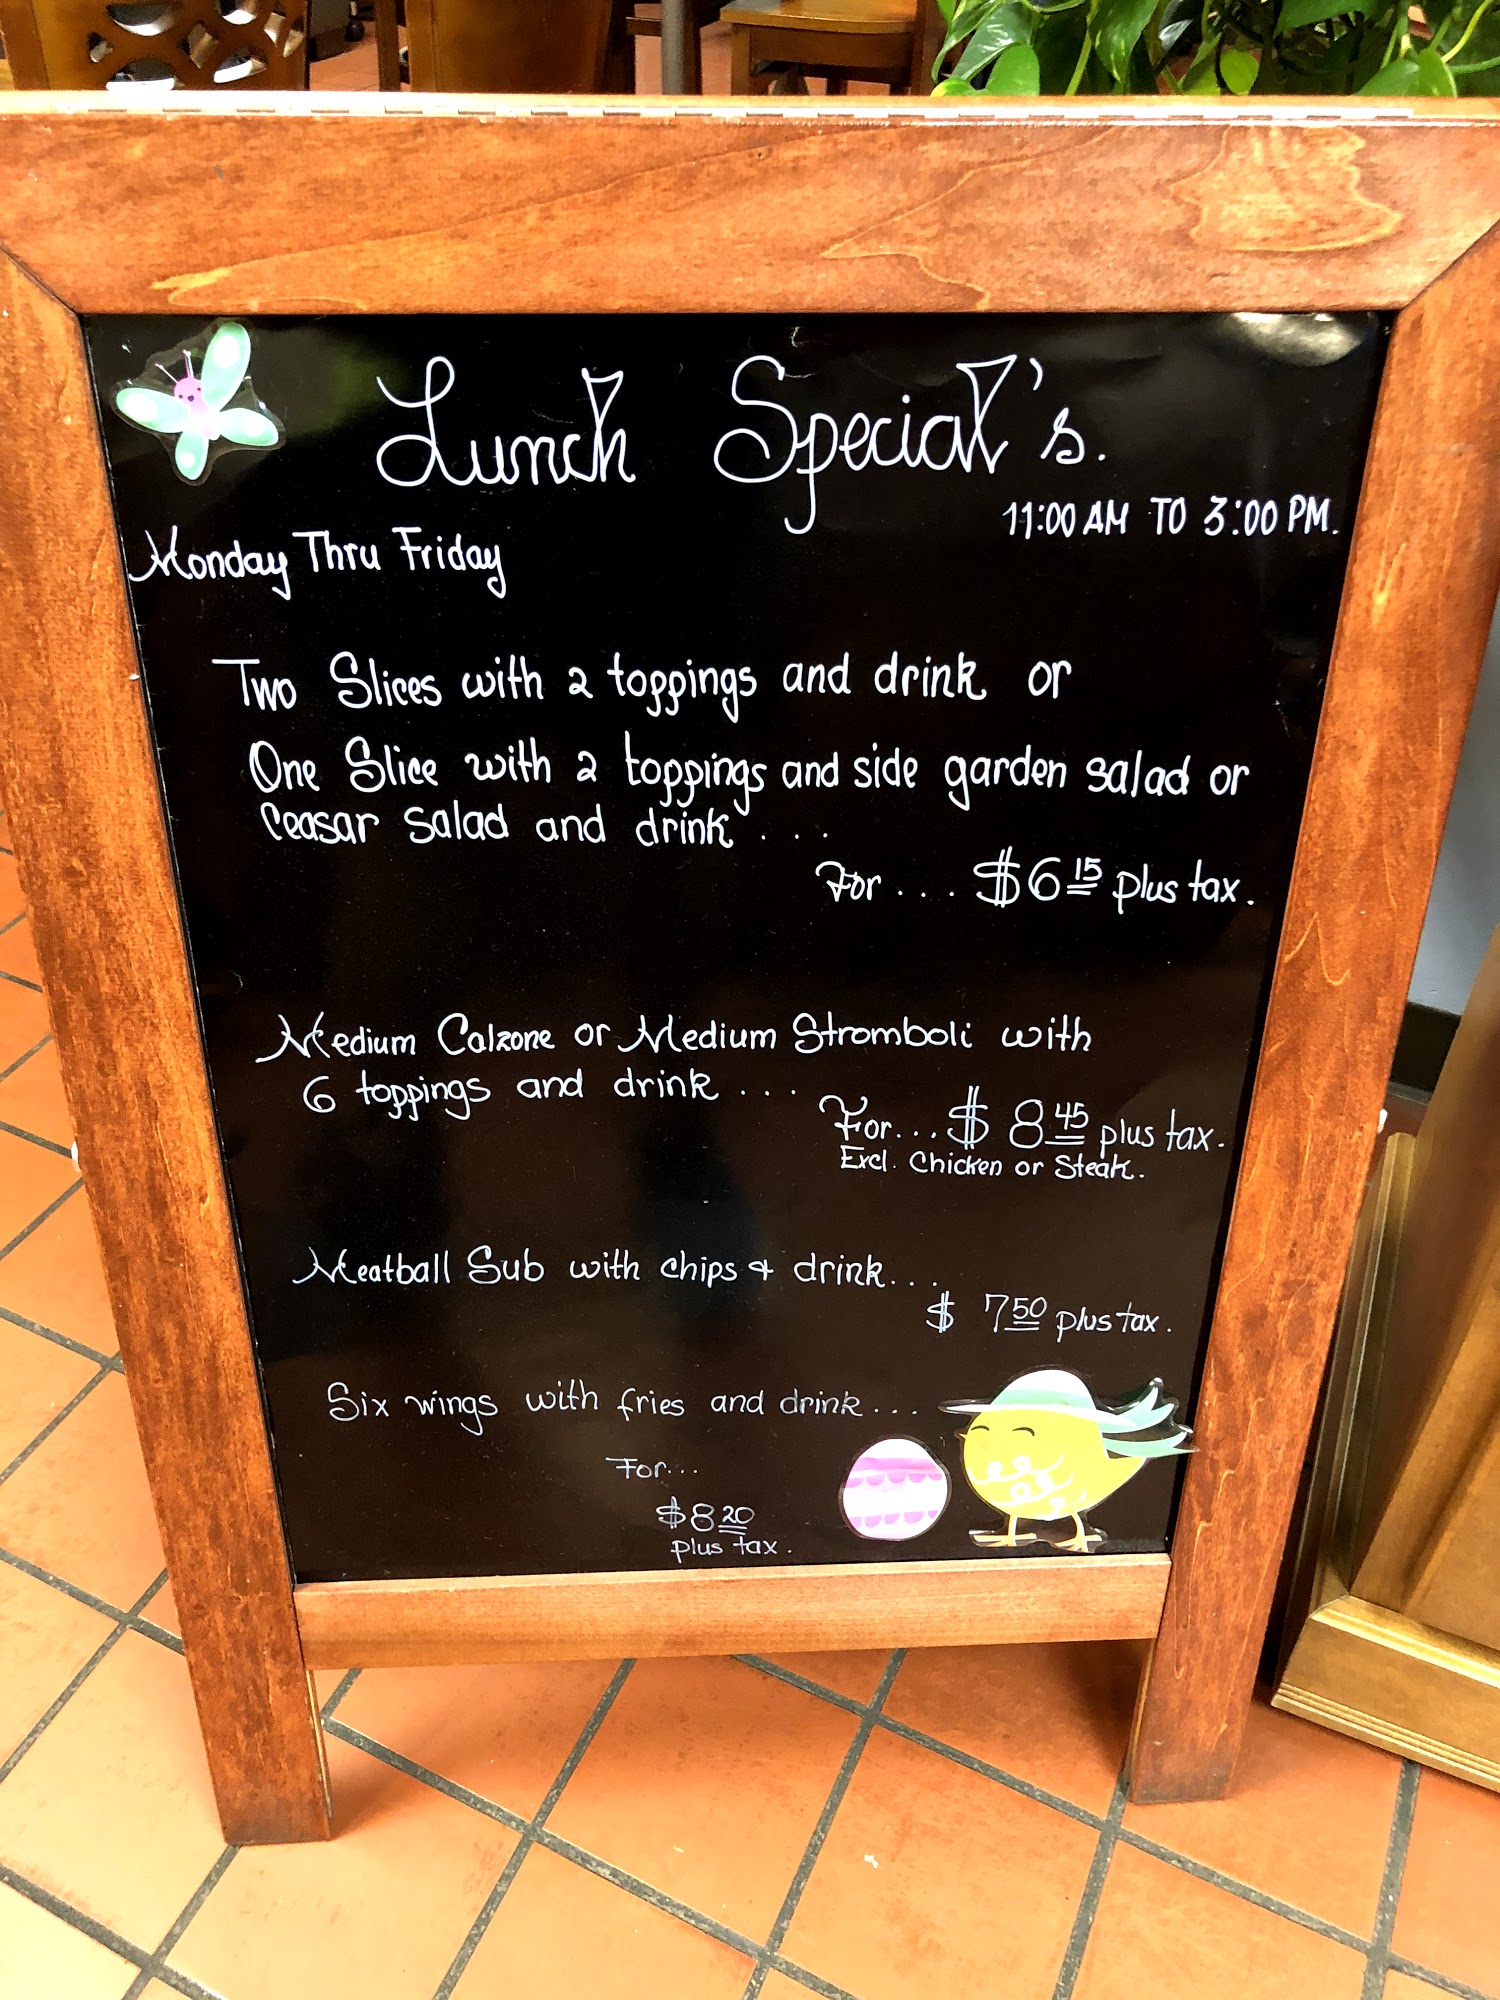 Lunch Special's.
11:00 AM TO 3:00 PM.
Monday Thru Friday
Two Slices with 2 toppings and drink or
One Slice with 2 toppings and side garden salad or
Ceasar salad and drink ...
For .... $6 15 plus tax.
Medium Calzone or Medium Stromboli with
6 toppings and drink ...
For... $ 8 45 plus tax.
Excl. Chicken or Steak.
Meatball Sub with chips & drink...
$ 7 50 plus tax.
Six wings with fries and drink...
For...
$8 20
plus tax.